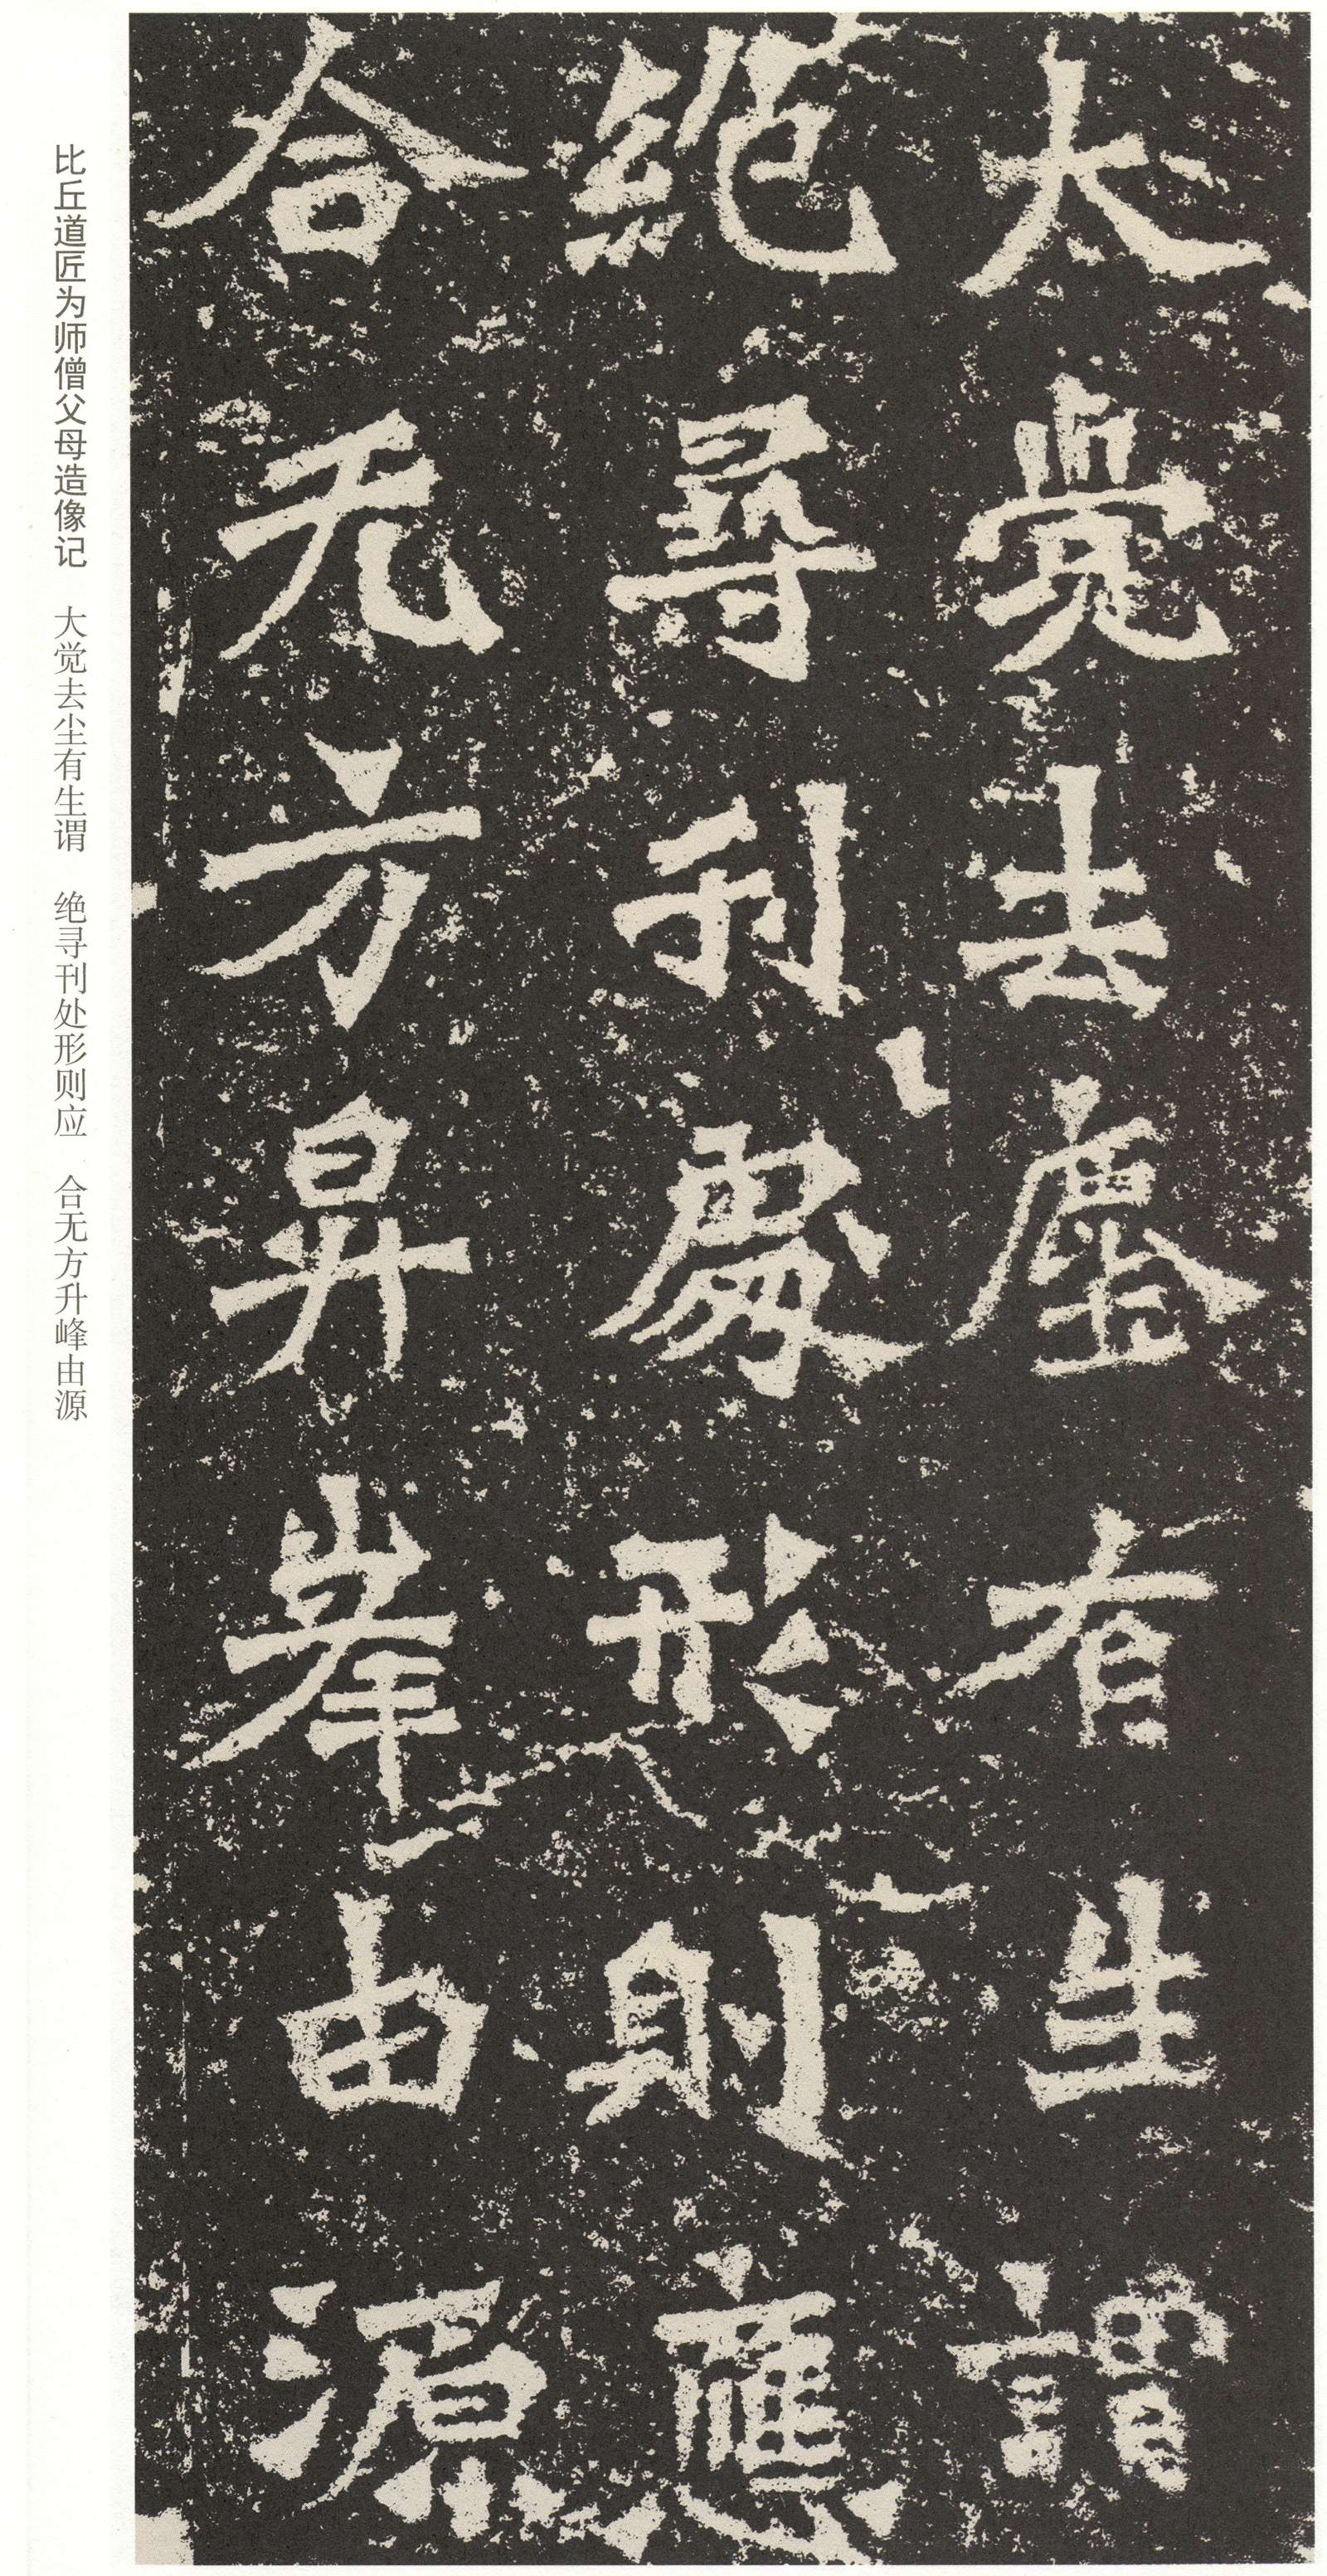 大覺去塵有生謂
絶尋刋處形則應
合无方昇峯由源
比丘道匠为师僧父母造像记 大觉去尘有生谓 绝寻刊处形则应 合无方升峰由源